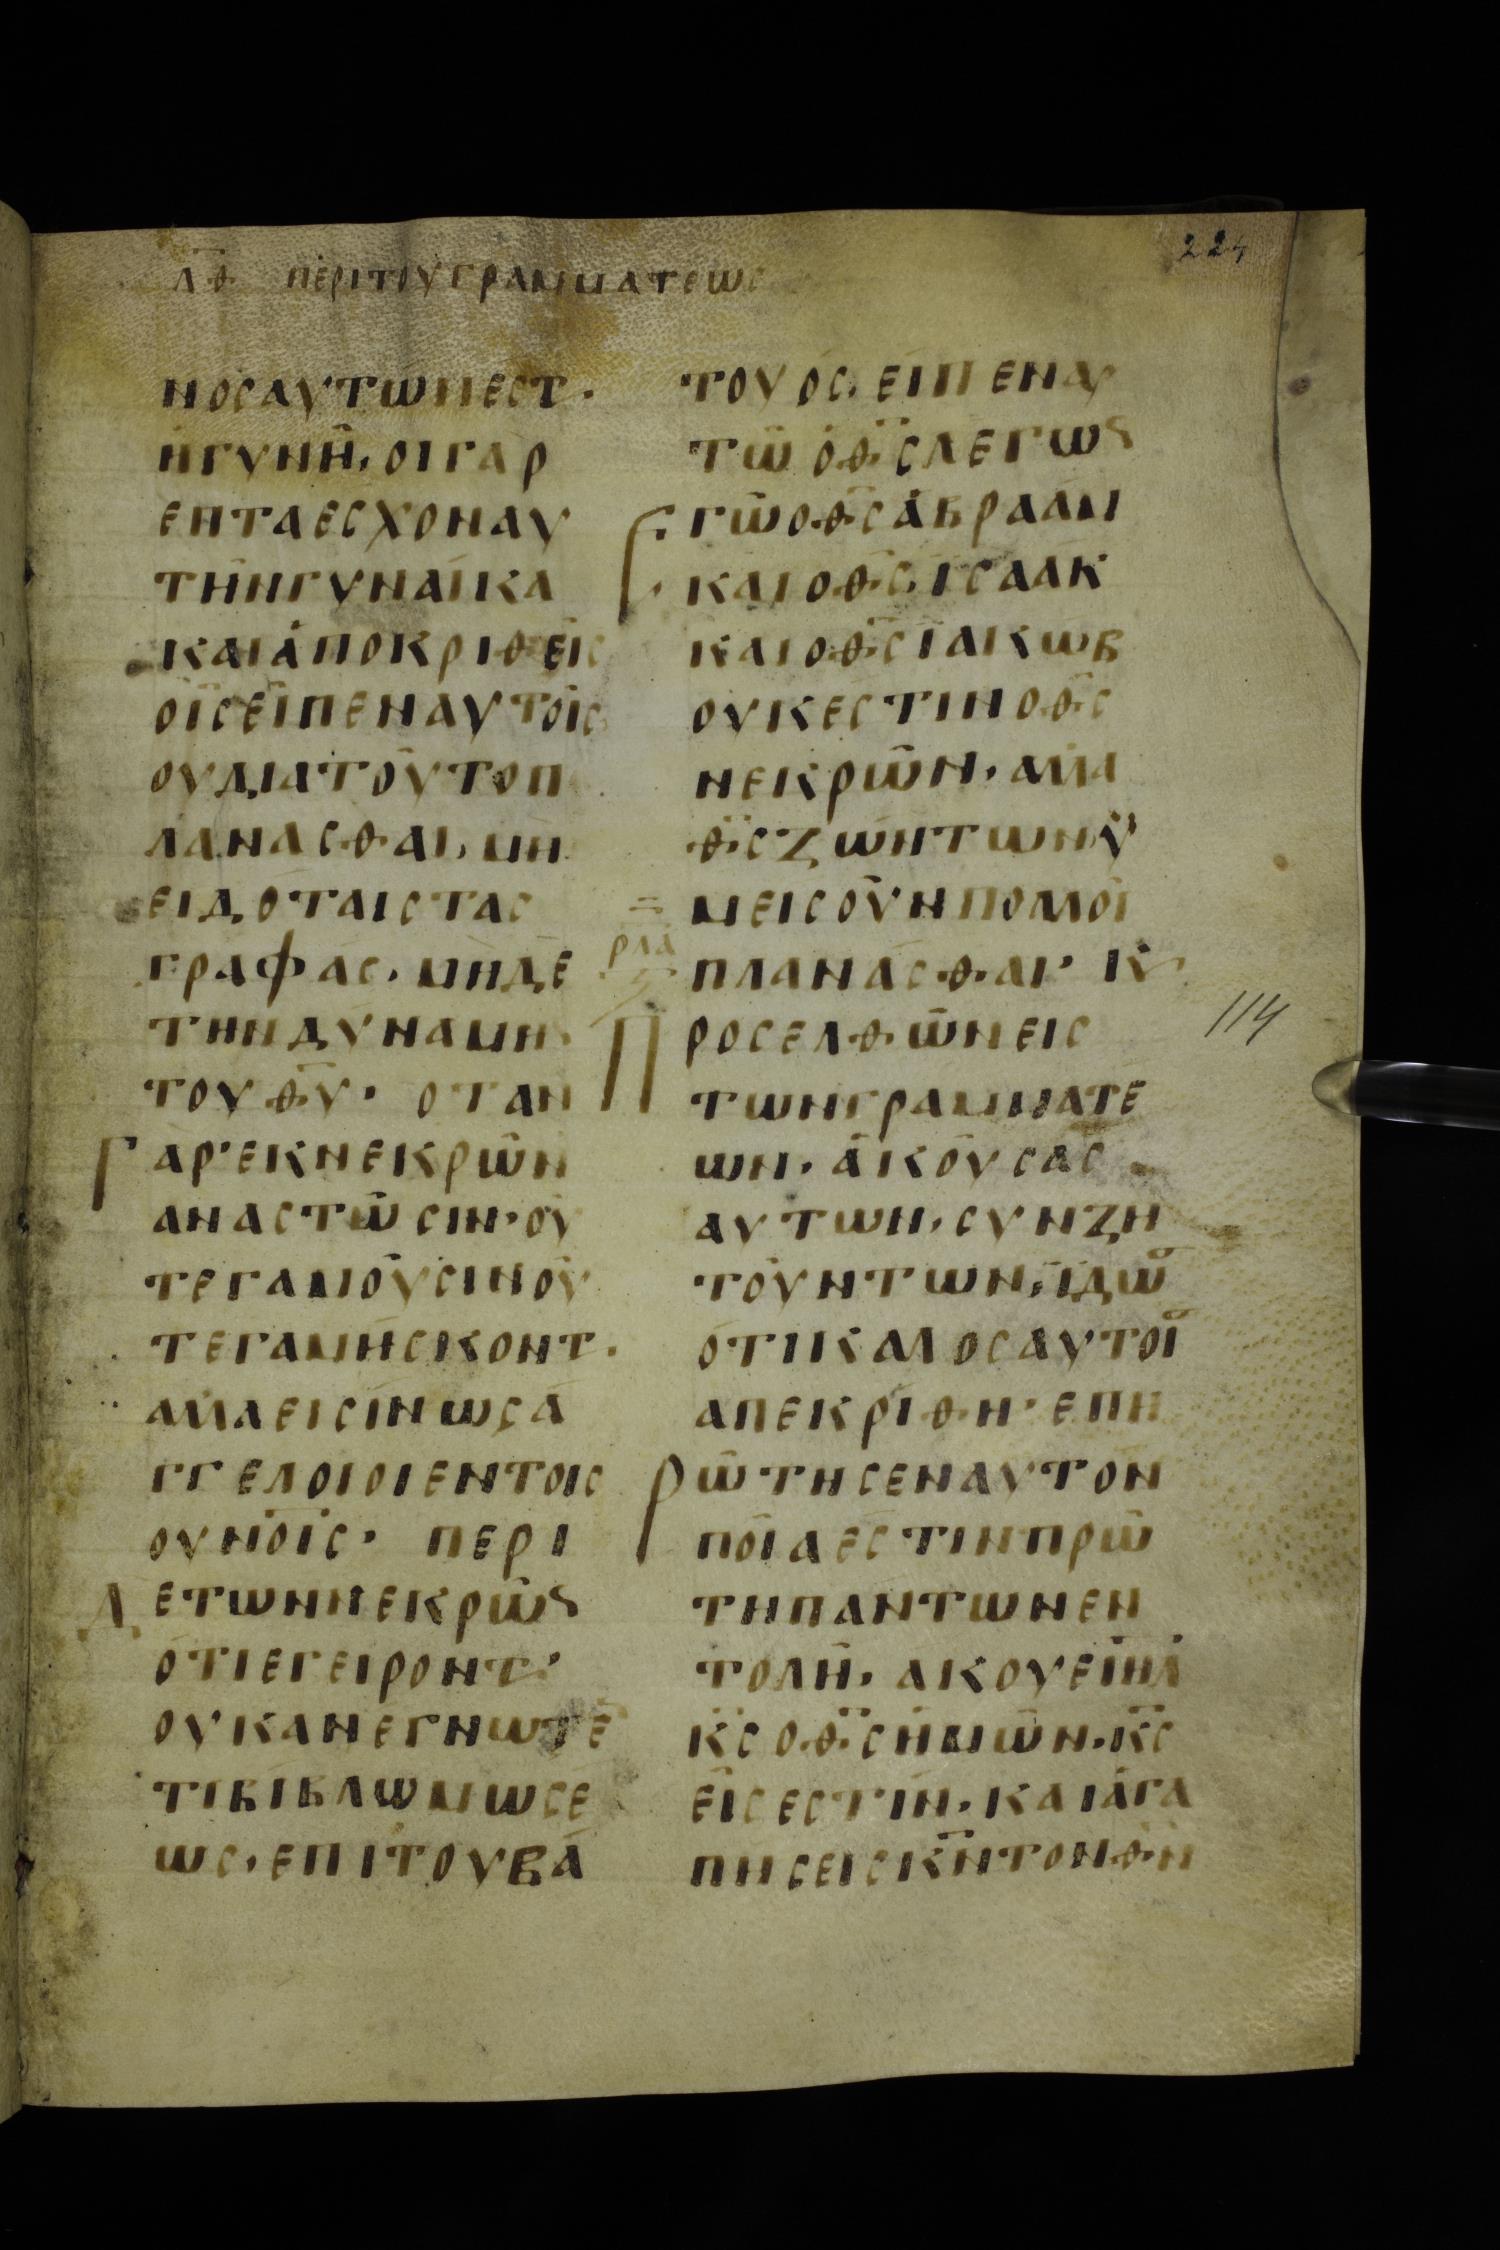 224
ΛΘ ΠΕΡΙΤΟΥΓΡΑΜΜΑΤΕΩΣ
ΝΟΣΑΥΤΩΝΕΣΤ·
ΗΓΥΝΗ, ΟΙΓΑΡ
ΕΠΤΑΕΣΧΟΝΑΥ
ΤΗΝΓΥΝΑΙΚΑ
ΚΑΙΑΠΟΚΡΙΘΕΙΣ
ΟΙΣΕΙΠΕΝΑΥΤΟΙΣ
ΟΥΔΙΑΤΟΥΤΟΠ
ΛΑΝΑΣΘΑΙ, ΜΗ
ΕΙΔΟΤΑΙΣΤΑΣ
ΓΡΑΦΑΣ, ΜΗΔΕ
ΤΗΝΔΥΝΑΜΗΝ
ΤΟΥΘΥ· ΟΤΑΝ
ΓΑΡ·ΕΚΝΕΚΡΩΝ
ΑΝΑΣΤΩΣΙΝ·ΟΥ
ΤΕΓΑΜΟΥΣΙΝΟΥ
ΤΕΓΑΜΗΣΚΟΝΤ·
ΑΛΛΑΕΙΣΙΝΩΣΑ
ΓΓΕΛΟΙΟΙΕΝΤΟΙΣ
ΟΥΝΟΙΣ· ΠΕΡΙ
ΔΕΤΩΝΝΕΚΡΩϚ
ΟΤΙΕΓΕΙΡΟΝΤ·
ΟΥΚΑΝΕΓΝΩΤΕ
ΤΙΒΙΒΛΩΜΩΣΕ
ΩΣ, ΕΠΙΤΟΥΒΑ
ΤΟΥΟΣ, ΕΙΠΕΝΑΥ
ΤΩ ΟΘΣΛΕΓΩϚ
ΕΓΩΟΘΣΑΒΡΑΑΜ
ΚΑΙΟΘΣ, ΙΣΑΑΚ
ΚΑΙΟΘΣΙΑΚΩΒ
ΟΥΚΕΣΤΙΝΟΘΣ
ΝΕΚΡΩΝ, ΑΛΛΑ
ΘΣΖΩΝΤΩΝΥ
ΜΕΙΣΟΥΝΠΟΛΛΟΙ
ΡΛΑ
ΠΛΑΝΑΣΘΑΙ· ΙΚ
ΠΡΟΣΕΛΘΩΝΕΙΣ
ΤΩΝΓΡΑΜΜΑΤΕ
ΩΝ, ΑΚΟΥΣΑΣ
ΑΥΤΩΝ, ΣΥΝΖΗ
ΤΟΥΝΤΩΝ, ΙΔΩ
ΟΤΙΚΑΛΟΣΑΥΤΟΙ
ΑΠΕΚΡΙΘΗ· ΕΠΗ
ΡΩΤΗΣΕΝΑΥΤΟΝ
ΠΟΙΑΕΣΤΙΝΠΡΩ
ΤΗΠΑΝΤΩΝΕΝ
ΤΟΛΗ, ΑΚΟΥΕΙΗΛ
ΚΣ ΟΘΣΗΜΩΝ, ΚΣ
ΕΙΣΕΣΤΙΝ, ΚΑΙΑΓΑ
ΠΗΣΕΙΣΚΝΤΟΝΘΝ
114